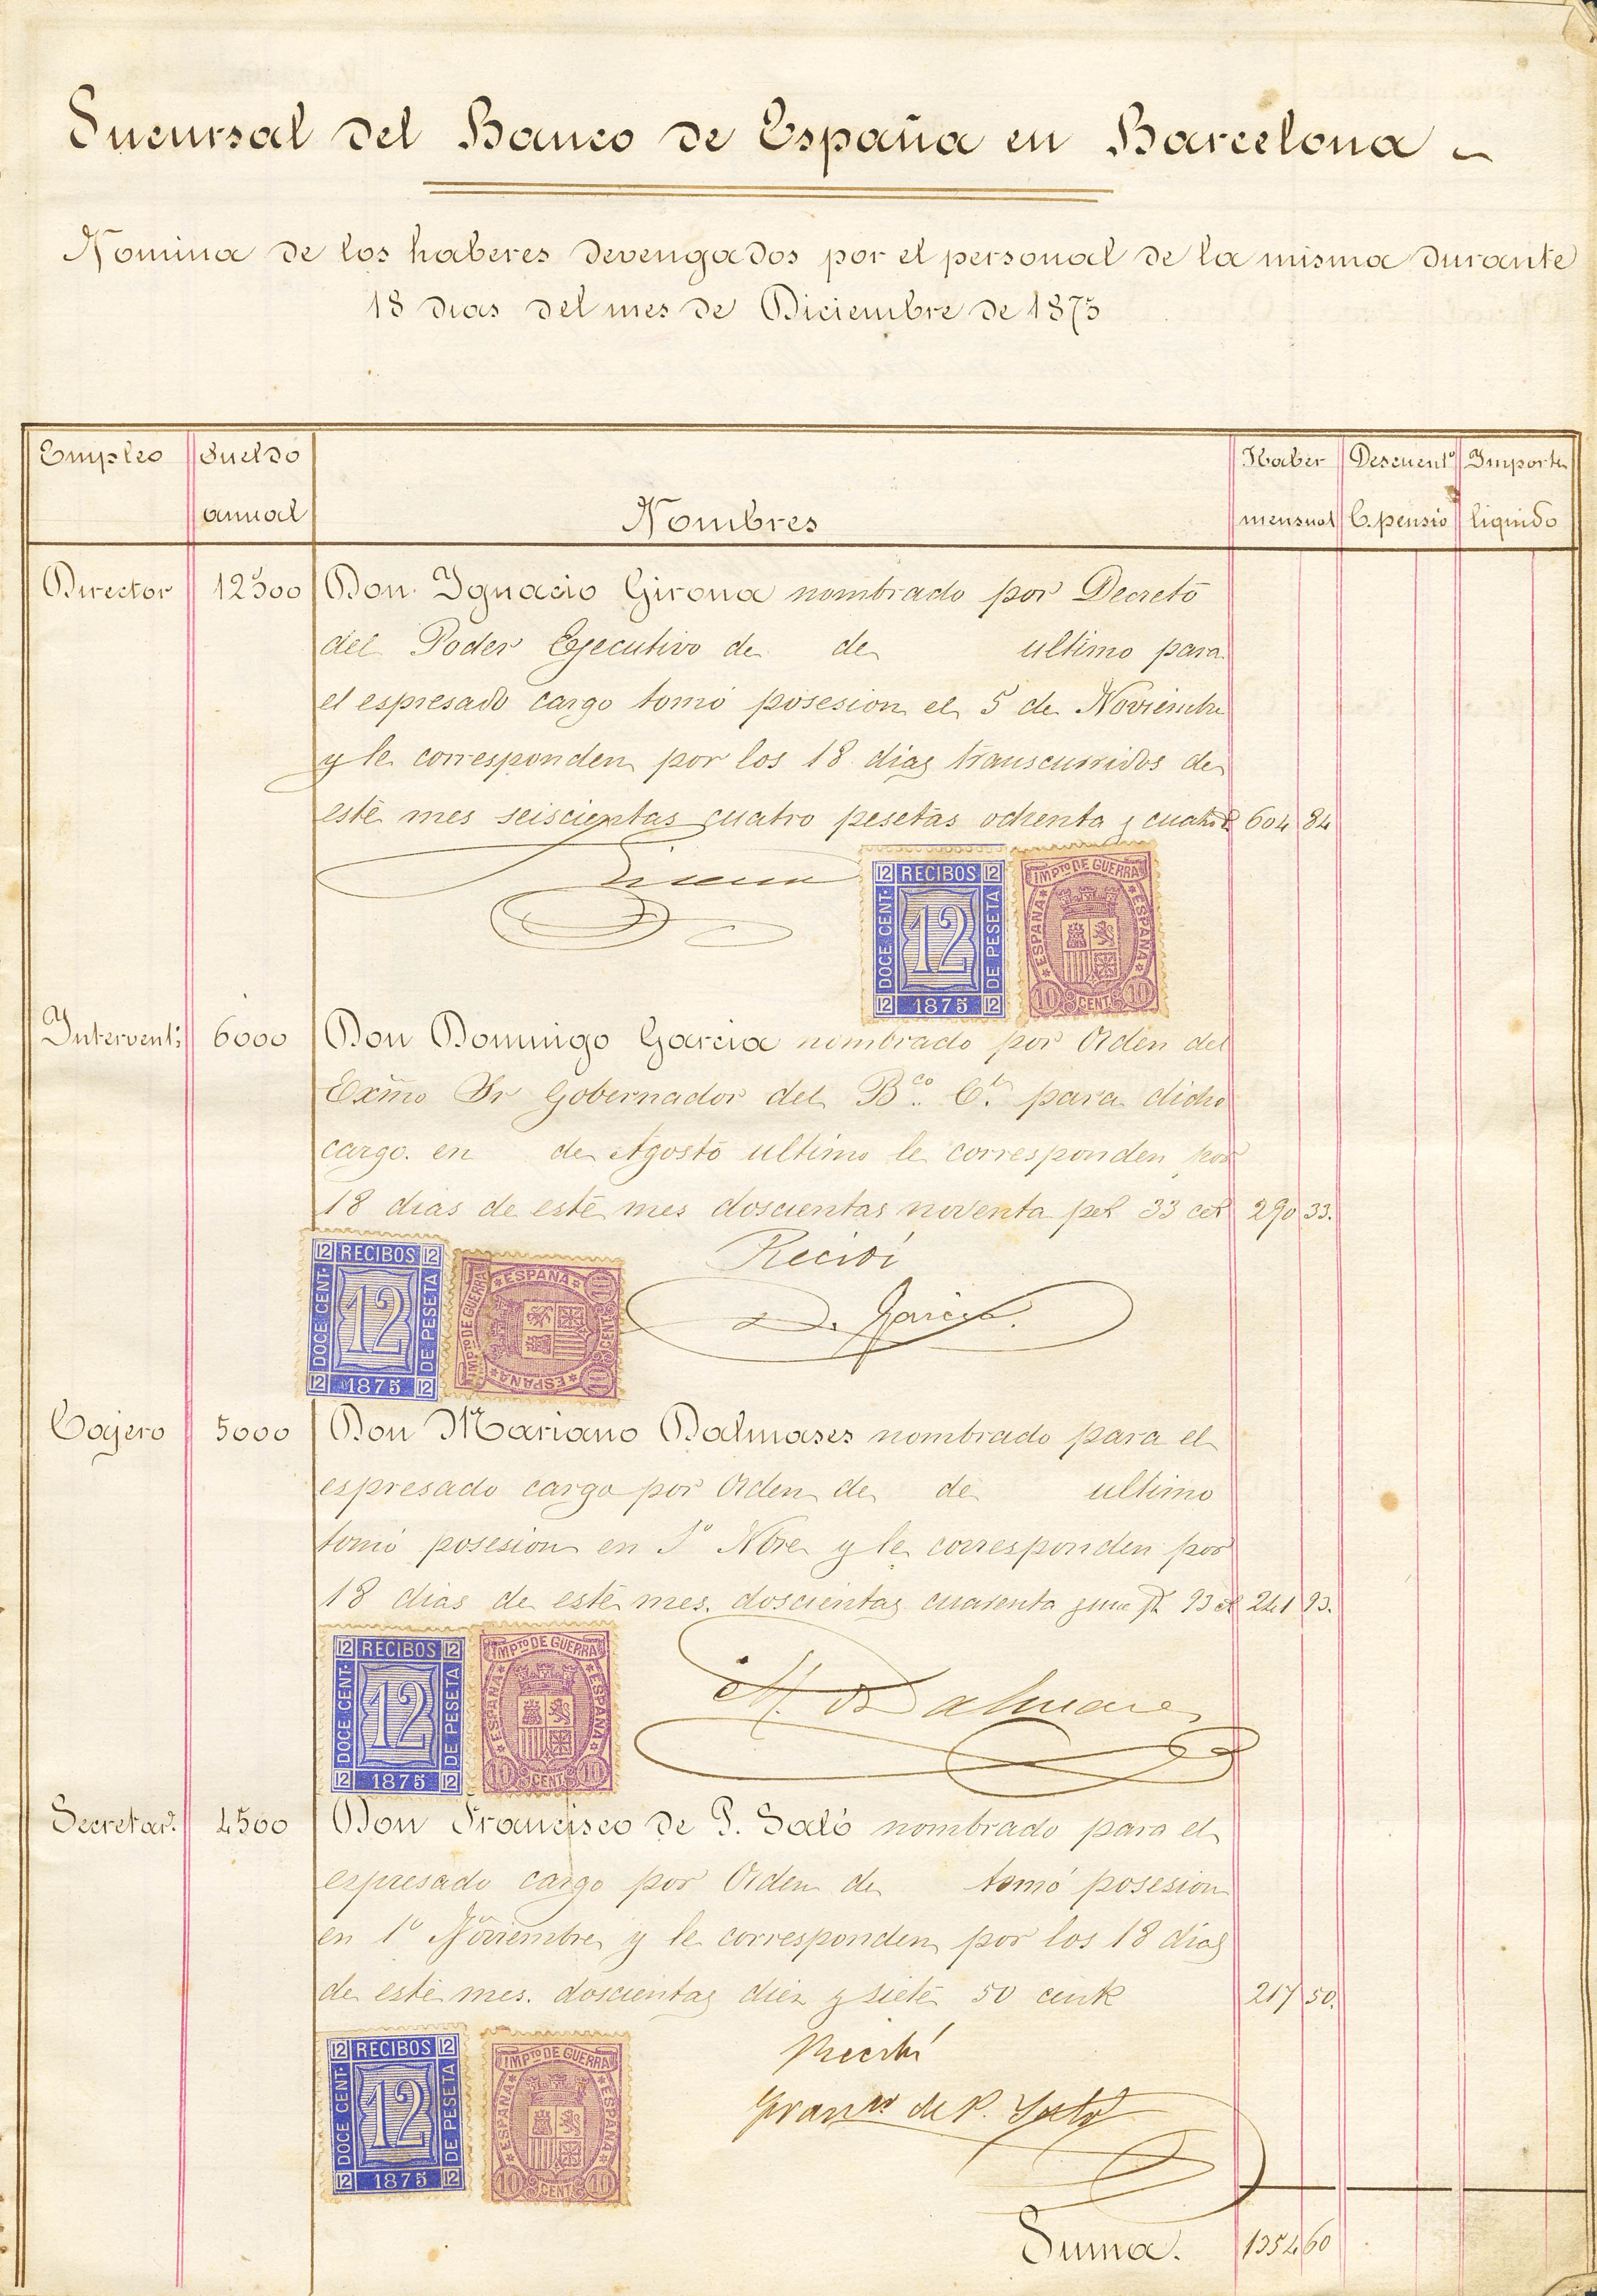 Sucursal del Banco de España en Barcelona
Nomina de los haberes devengados por el personal de la misma durante
18 dias del mes de Diciembre de 1875
Empleo
Sueldo annual
Nombres
Haber mensual
Descuent.º C. pensio
Importe liquido
Director 12500 Don Ygnacio Girona nombrado por Decreto
del Poder Ejecutivo de de ultimo para
el espresado cargo tomó posesion el 5 de Noviembre
y le corresponden por los 18 dias transcurridos de
este mes seiscientas cuatro pesetas ochenta y cuatro 604 84
Girona
12 RECIBOS 12
DOCE CENT. 12 DE PESETA
12 1875 12
IMPTO DE GUERRA
ESPAÑA ESPAÑA
10 CENT. 10
Intervent. 6000 Don Domingo Garcia nombrado por Orden del
Exmo Sr Gobernador del B.co para dicho
cargo. en de Agosto ultimo le corresponden por
18 dias de este mes doscientas noventa 33 290 33.
Recibí
D. Garcia.
12 RECIBOS 12
DOCE CENT. 12 DE PESETA
12 1875 12
IMPTO DE GUERRA
ESPAÑA ESPAÑA
10 CENT. 10
Cajero 5000 Don Mariano Dalmases nombrado para el
espresado cargo por Orden de de ultimo
tomó posesion en 1º Nbre y le corresponden por
18 dias de este mes. doscientas cuarenta y una 93 241 93.
M. Dalmases
12 RECIBOS 12
DOCE CENT. 12 DE PESETA
12 1875 12
IMPTO DE GUERRA
ESPAÑA ESPAÑA
10 CENT. 10
Secretar.º 4500 Don Francisco de P. Saló nombrado para el
espresado cargo por Orden de tomó posesion
en 1º Noviembre y le corresponden por los 18 dias
de este mes. doscientas diez y siete 50 217 50.
Recibí
Fran.co de P. Saló
12 RECIBOS 12
DOCE CENT. 12 DE PESETA
12 1875 12
IMPTO DE GUERRA
ESPAÑA ESPAÑA
10 CENT. 10
Suma. 1354 60